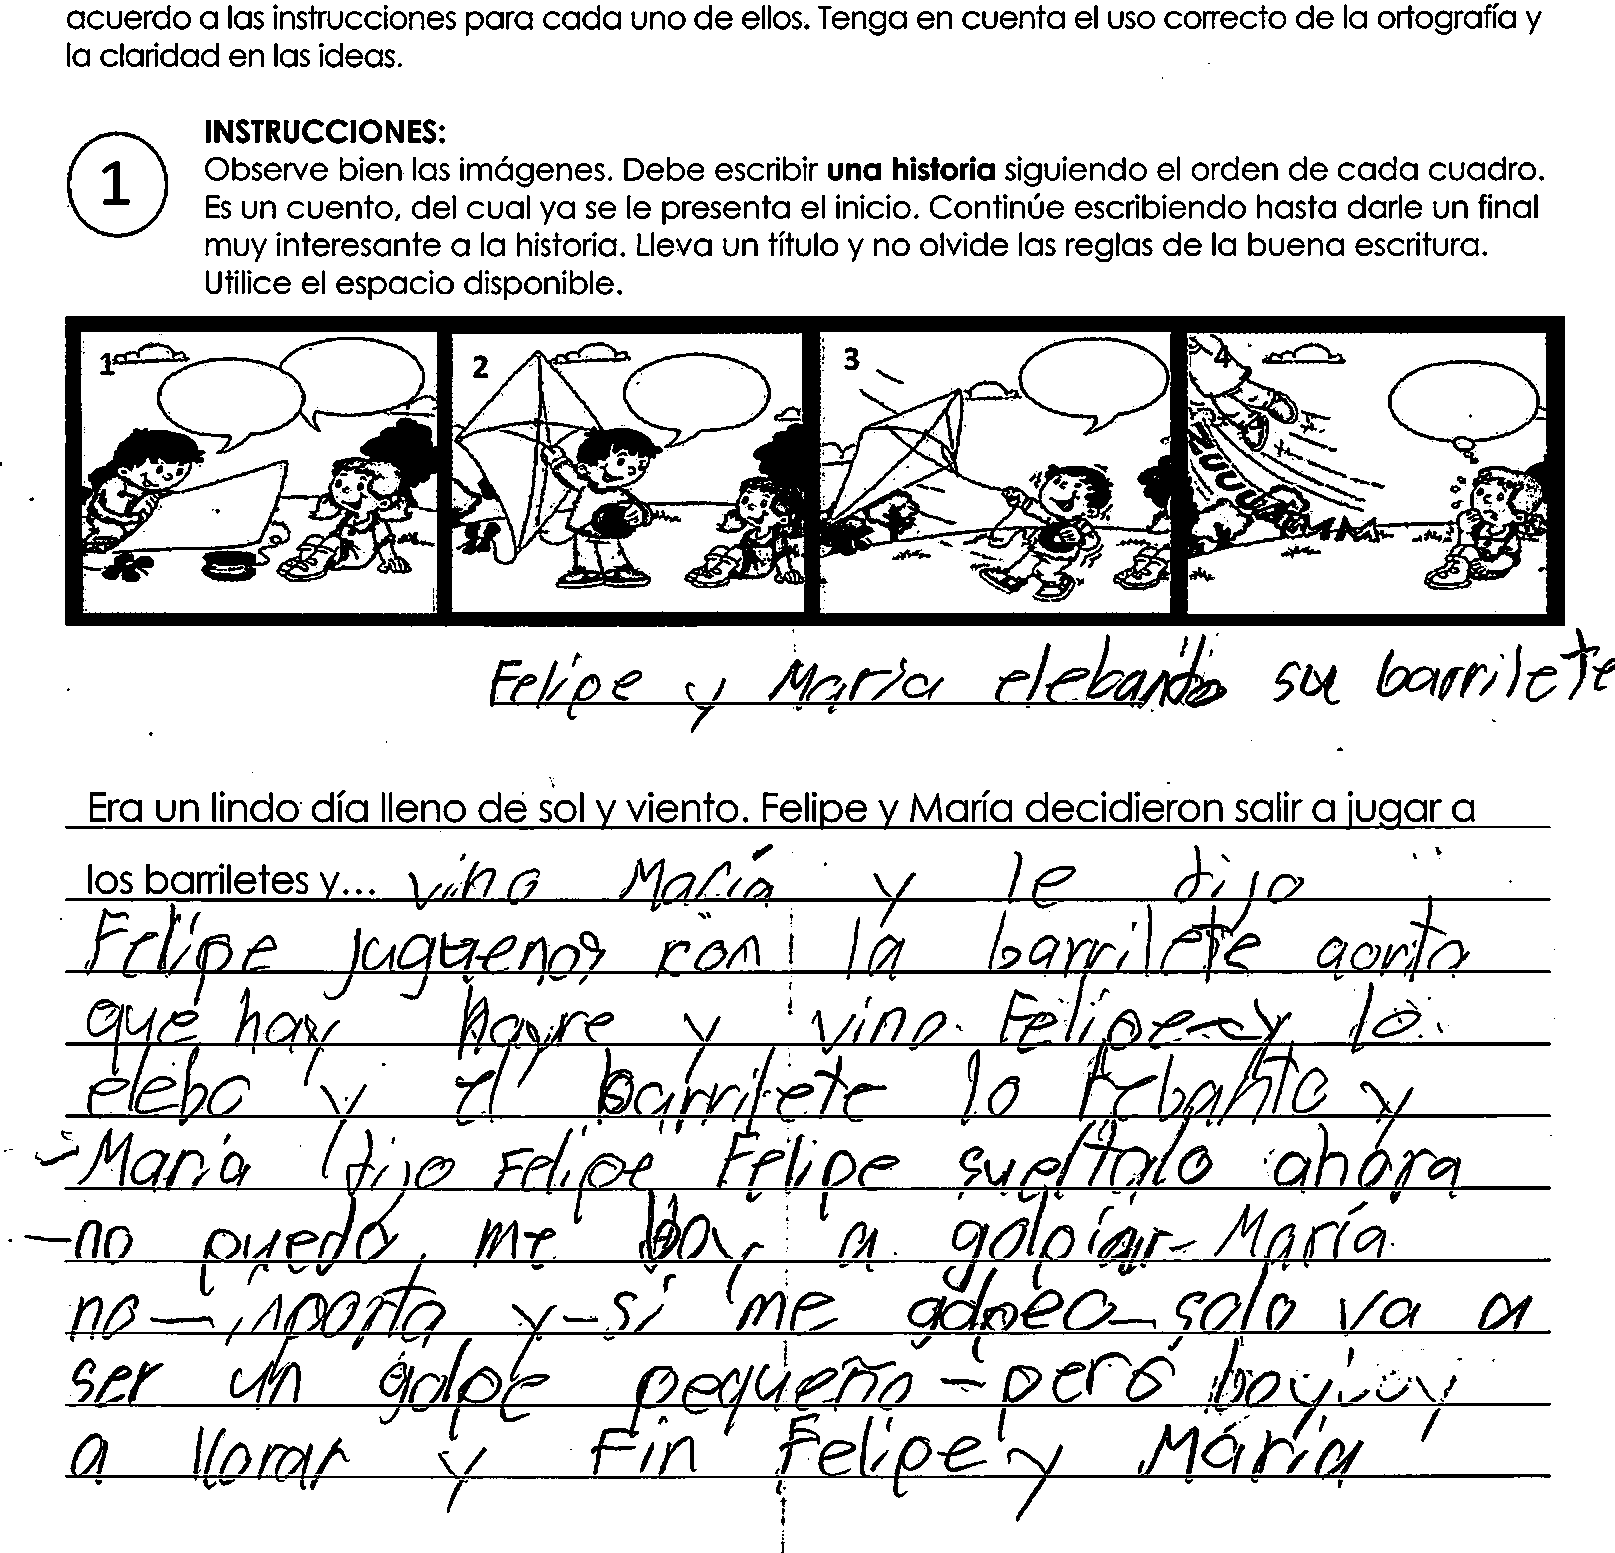 acuerdo a las instrucciones para cada uno de ellos. Tenga en cuenta el uso correcto de la ortografía y
la claridad en las ideas.
INSTRUCCIONES:
1
Observe bien las imágenes. Debe escribir una historia siguiendo el orden de cada cuadro.
Es un cuento, del cual ya se le presenta el inicio. Continúe escribiendo hasta darle un final
muy interesante a la historia. Lleva un título y no olvide las reglas de la buena escritura.
Utilice el espacio disponible.
1 2 3 4
Felipe y María elebando su barrilete
Era un lindo día lleno de sol y viento. Felipe y María decidieron salir a jugar a
los barriletes y... vino María y le dijo
Felipe juguemos con la barrilete aorta
que hay hayre y vino Felipe y lo
elebo y el barrilete lo lebanto y
María dijo Felipe Felipe sueltalo ahora
—no puedo, me a golpiar- María
no — inporta y-si me golpeo—solo va a
ser un golpe pequeño — pero boy
a llorar y Fin Felipe y María